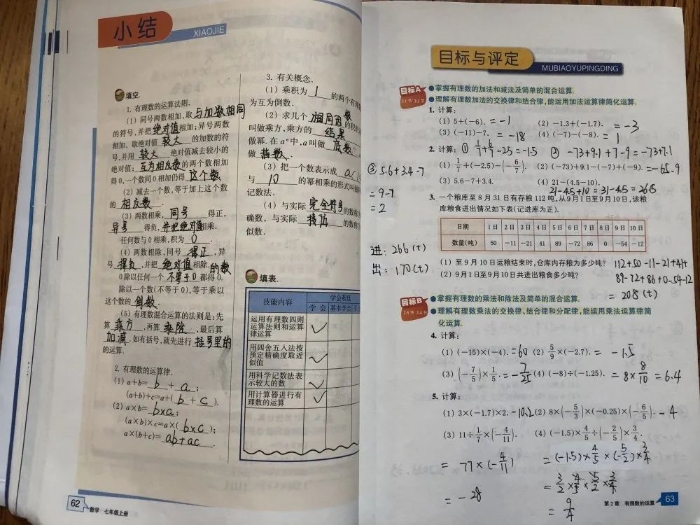 小结
XIAOJIE
填空
1. 有理数的运算法则.
(1) 同号两数相加,取与加数相同
的符号,并把绝对值相加;异号两数
相加,取绝对值较大的加数的符
号,并用较大绝对值减去较小的
绝对值;互为相反数的两个数相加
得0,一个数同0相加仍得这个数
(2) 减去一个数,等于加上这个数
的相反数
(3) 两数相乘,同号得正,
异号得负,并把绝对值相乘.
任何数与0相乘,积为0.
(4) 两数相除,同号得正,异
号得负,并把绝对值相除.
0除以任何一个不等于0的数都得0.
除以一个数(不等于0),等于乘以
这个数的倒数
(5) 有理数混合运算的法则是:先
算乘方,再算乘除,最后算
加减.如有括号,就先进行括号里的
的运算.
2. 有理数的运算律.
(1) a+b=b+a;
(a+b)+c=a+(b+c).
(2) a×b=b×a;
(a×b)×c=a×(b×c);
a×(b+c)=ab+ac.
62 数学·七年级上册
3. 有关概念.
(1) 乘积为1的两个有
为互为倒数.
(2) 求几个相同因数
叫做乘方,乘方的结果
做幂.在aⁿ中,a叫做底数
做指数.
(3) 把一个数表示成a
与10的幂相乘的形式叫
记数法.
(4) 与实际完全符合的数
确数,与实际接近的
似数.
填表.
技能内容
学会程度
学会 基本学会
运用有理数四则
运算法则和运算
律运算 ✓
用四舍五入法按
预定精确度取近
似值 ✓
用科学记数法表
示较大的数 ✓
用计算器进行有
理数的运算 ✓
目标与评定
MUBIAOYUPINGDING
目标A
掌握有理数的加法和减法及简单的混合运算.
理解有理数加法的交换律和结合律,能运用加法运算律简化运算.
1. 计算:
(1) 5+(-6). = -1 (2) -1.3+(-1.7). = -3
(3) (-11)-7. = -18 (4) (-7)-(-8). = 1
2. 计算:
(1) 1/7+(-2.5)-(-6/7). (2) (-73)+9(-1)-(-7)+(-9).
(3) 5.6-7+3.4. (4) 21-(4.5-10).
③ 5.6+3.4-7
=9-7
=2
21-4.5+10=31-4.5=26.5
3. 一个粮库至8月31日有存粮112吨,从9月1日至9月10日,该粮
库粮食进出情况如下表(记进库为正).
日期 1日 2日 3日 4日 5日 6日 7日 8日 9日 10日
数量(吨) 50 -11 -21 41 89 -72 86 0 -54 -12
(1) 至9月10日运粮结束时,仓库内存粮为多少吨?
(2) 9月1日至9月10日共进出粮食多少吨?
进: 266(t)
出: 170(t)
112+50-11-21+41+
89-72+86+0-54-12
=208(t)
目标B
掌握有理数的乘法和除法及简单的混合运算.
理解有理数乘法的交换律、结合律和分配律,能运用乘法运算律简
化运算.
4. 计算:
(1) (-15)×(-4). =60 (2) 5/9×(-2.7). = -1.5
(3) (-7/5)×1/5. =-7/25 (4) (-8)÷(-1.25). =8×8/10=6.4
5. 计算:
(1) 3×(-1.7)×2. -10.2 (2) 8×(-5/3)×(-0.25)×(-6/5). -4
(3) 11÷1/7×(-4/11). (4) (-1.5)×4/5÷(-2/5)×3/4.
=77×(-4/11)
=-28
=(-1.5)×4/5×(-5/2)×3/4
=3/2×4/5×5/2×3/4
=9/4
第2章 有理数的运算 63